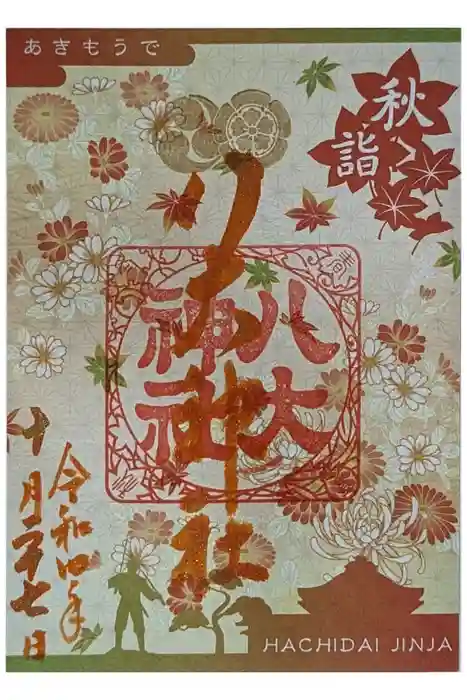 あきもうで
秋詣
八大神社
八大神社
令和四年
十月二十七日
HACHIDAI JINJA